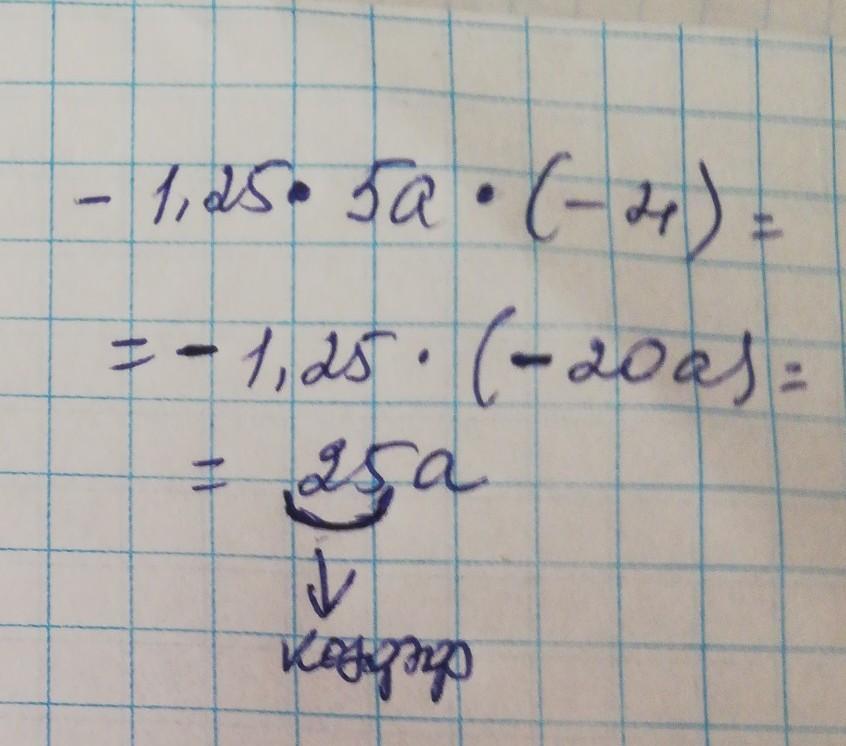 - 1,25 • 5a • (- 4) =
= - 1,25 · (- 20a) =
= 25a
↓
коэффр